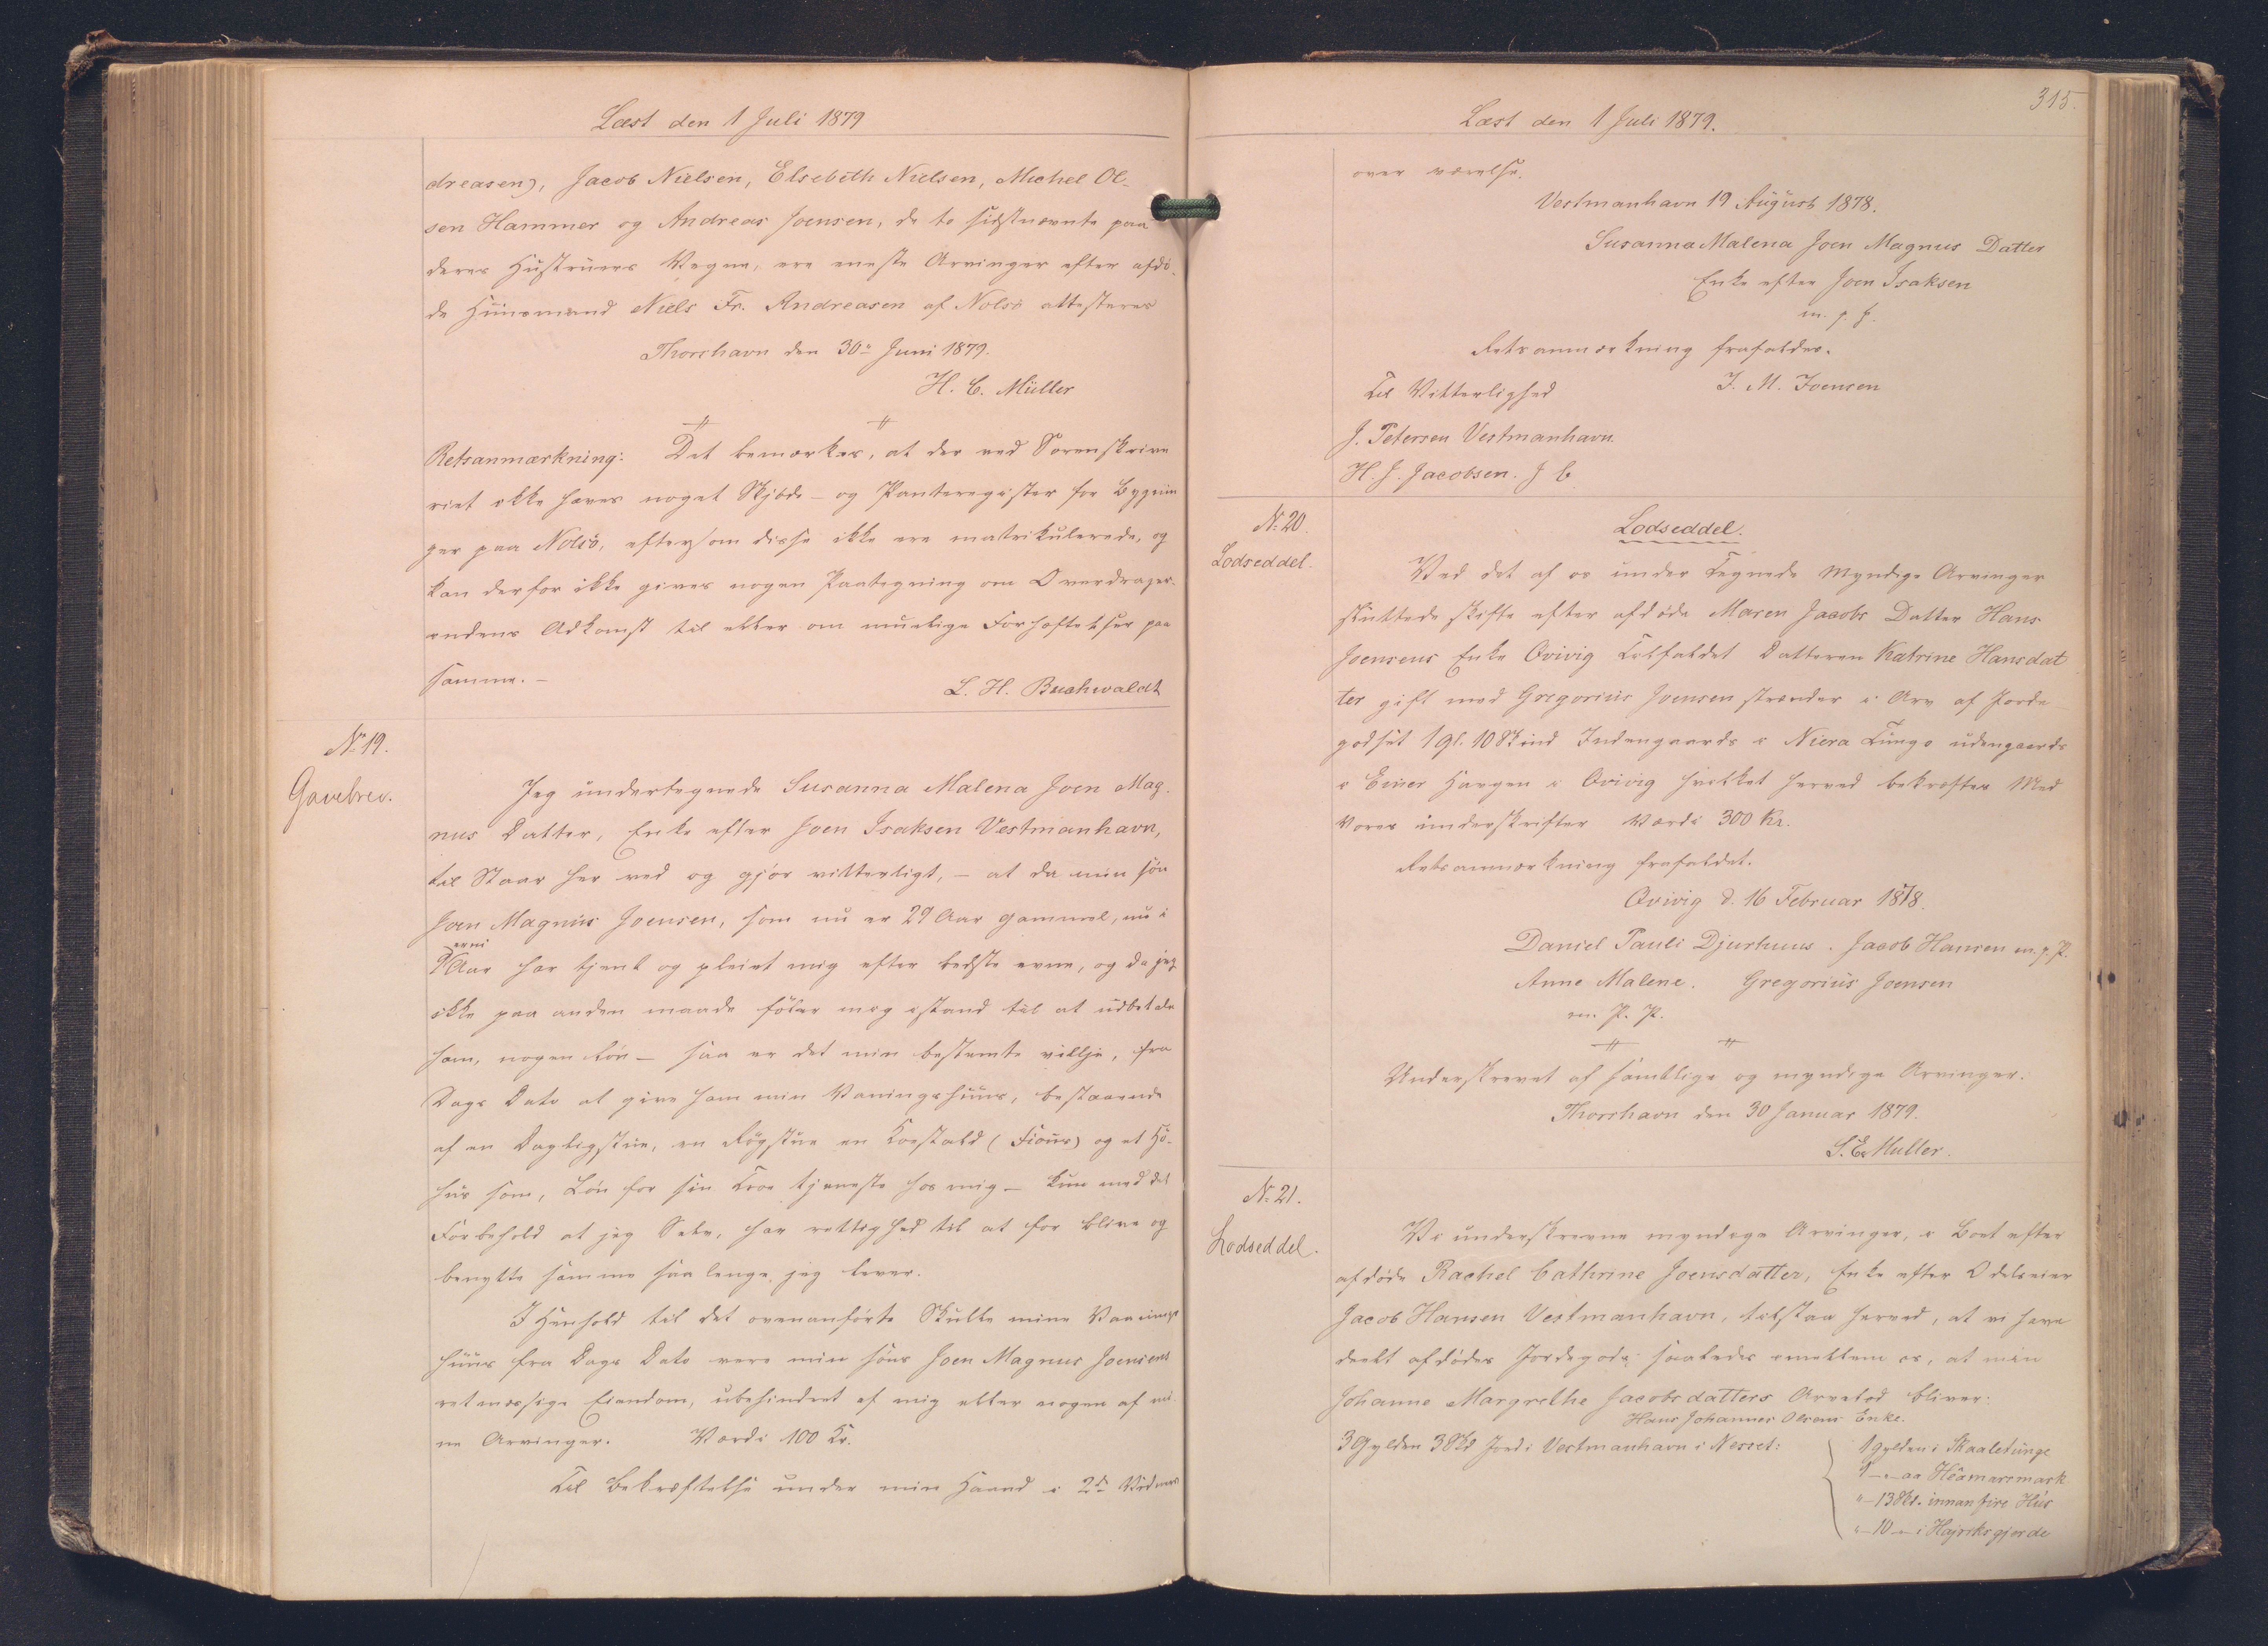 Læst den 1 Juli 1879
dreasen), Jacob Nielsen, Elsebeth Nielsen, Michel Ol-
sen Hammer og Andreas Joensen, de to sidstnævnte paa
deres Hustruers Vegne, ere eneste Arvinger efter afdö-
de Huusmand Niels Fr. Andreasen af Nolsö attesteres
Thorshavn den 30te Juni 1879.
H. C. Müller
Retsanmærkning: Det bemærkes, at der ved Sorenskrive
riet ikke haves noget Skjöde- og Panteregister for Bygnin
ger paa Nolsö, eftersom disse ikke ere matrikulerede, og
kan derfor ikke gives nogen Paategning om Overdrager-
endens Adkomst til eller om muelige Forhæftelser paa
samme. -
L. H. Buchwaldt
No 19.
Gavebrev.
Jeg undertegnede Susanna Malena Joen Mag-
nus Datter, Enke efter Joen Isaksen Vestmanhavn,
til Staar her ved og gjör vitterligt, - at da min sön
Joen Magnus Joensen, som nu er 29 Aar gammel, nu i
9 Aar har tjent og pleiet mig efter bedste evne, og da jeg
ikke paa anden maade föler mig istand til at udbetale
ham, nogen lön - saa er det min bestemte villje, fra
Dags Dato at give ham min Vaningshuus, bestaaende
af en Dagligstue, en Rögstue en Koestald (Fious) og et Hö-
hus som, Lön for sin Troe tjeneste hos mig - kun med det
Forbehold at jeg Selv, har rettighed til at for blive og
benytte samme saa lenge jeg lever.
I Henhold til det ovenanförte Skulle mine Vaanings
huus fra Dags Dato vere min söns Joen Magnus Joensens
retmæssige Eiendom, ubehindret af mig eller nogen af mi
ne Arvinger. Værdi 100 Kr.
Til Bekræftelse under min Haand i 2de Vidners
Læst den 1 Juli 1879.
315.
over værelse.
Vestmanhavn 19 August 1878.
Susanna Malena Joen Magnus Datter
Enke efter Joen Isaksen
m. p. p.
Retsanmærkning frafaldes.
Til Vitterlighed J. M. Joensen
J. Petersen Vestmanhavn.
H. J. Jacobsen.
No 20.
Lodseddel.
Lodseddel.
Ved det af os under Tegnede Myndige Arvinger
sluttede skifte efter afdöde Maren Jacobs Datter Hans
Joensens Enke Qvivig Tilfaldet Datteren Katrine Hansdat
ter gift med Gregorius Joensen strænder i Arv af Jorde
godset 1 gl. 10 Skind Indengaards i Niera Tungo udengaards
i Einer Haugen i Qvivig hvilket herved bekræftes Med
Vores underskrifter Værdi 300 Kr.
Retsanmærkning frafaldet.
Qvivig d. 16 Februar 1878.
Daniel Pauli Djurhuus. Jacob Hansen m. p. P.
Anne Malene. Gregorius Joensen
m. P. P.
Underskrevet af samtlige og myndige Arvinger.
Thorshavn den 30 Januar 1879.
S. E. Muller.
No 21.
Lodseddel.
Vi underskrevne myndige Arvinger, i Boet efter
afdöde Rachel Cathrine Joensdatter, Enke efter Odelseier
Jacob Hansen Vestmanhavn, tilstaa herved, at vi have
deelt afdödes Jordegods saaledes imellem os, at min
Johanne Margrethe Jacobsdatters Arvelod bliver:
Hans Johannes Olsens Enke.
3 Gylden 3 Skd Jord i Vestmanhavn i Nesset: 1 gylden i Skaaletunge
1 - " - aa Heamarsmark
" - 13 Skd. innan fire Hús
" - 10 - " - i Hajriksgjerde